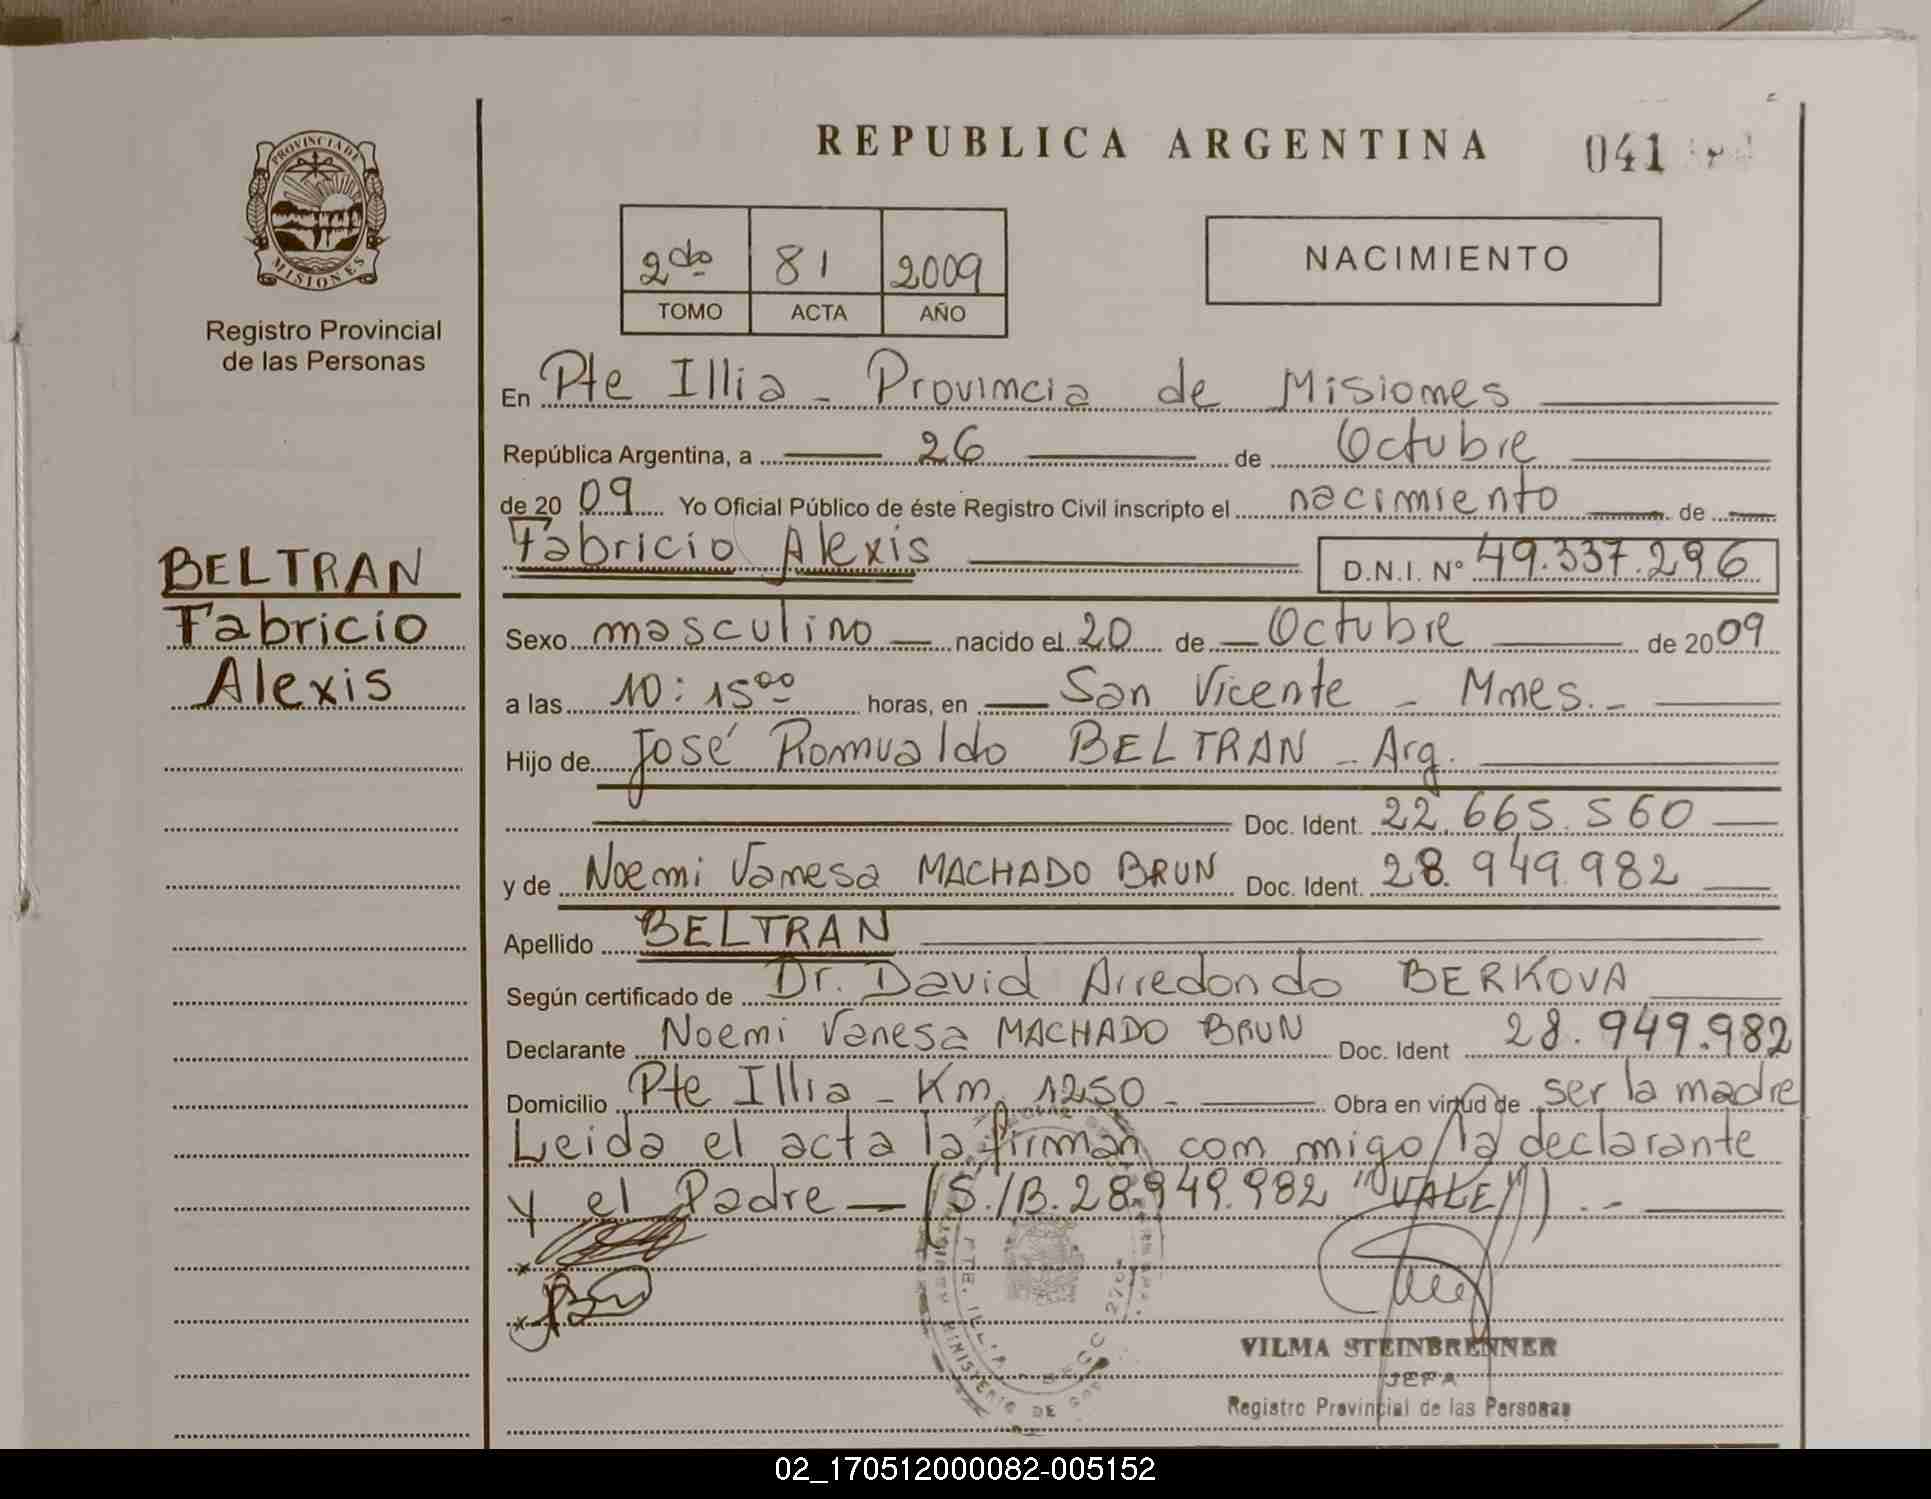 REPUBLICA ARGENTINA
041
PROVINCIA DE
MISIONES
Registro Provincial
de las Personas
2do 81 2009
TOMO ACTA AÑO
NACIMIENTO
En Pte Illia - Provincia de Misiones
República Argentina, a 26 de Octubre
de 2009 Yo Oficial Público de éste Registro Civil inscripto el nacimiento de
Fabricio Alexis D.N.I. Nº 49.337.296
BELTRAN
Fabricio
Alexis
Sexo masculino nacido el 20 de Octubre de 2009
a las 10:15⁰⁰ horas, en San Vicente - Mnes.-
Hijo de José Romualdo BELTRAN - Arg.
Doc. Ident. 22.665.560
y de Noemi Vanesa MACHADO BRUN Doc. Ident. 28.949.982
Apellido BELTRAN
Según certificado de Dr. David Arredondo BERKOVA
Declarante Noemi Vanesa MACHADO BRUN Doc. Ident 28.949.982
Domicilio Pte Illia - Km 1250 - Obra en virtud de ser la madre
Leida el acta la firman com migo la declarante
y el Padre - (S./B. 28.949.982 "VALE") .-
PTE. ILLIA
MINISTERIO DE
VILMA STEINBRENNER
JEFA
Registro Provincial de las Personas
02_170512000082-005152